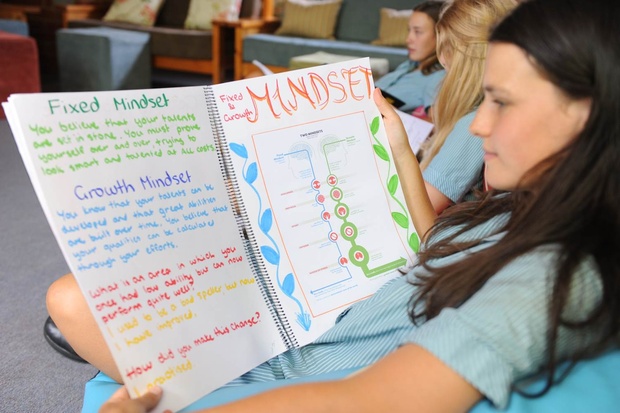 Fixed Mindset
You believe that your talents
are set in stone. You must prove
yourself over and over trying to
look smart and talented at all costs.
Growth Mindset
You know that your talents can be
developed and that great abilities
are built over time. You believe that
your qualities can be calculated
through your efforts.
What is an area in which you
once had low ability but can now
perform quite well?
I used to be a bad speller but now
I have improved.
How did you make this change?
I practised
Fixed
&
Growth
MINDSET
TWO MINDSETS